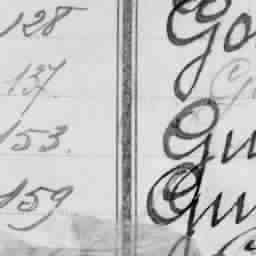 128 Go
137 Gu
153. Gu
159 Gu